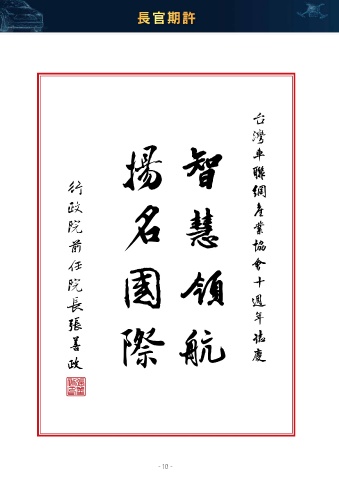 長官期許
台灣車聯網產業協會十週年誌慶
智慧領航
揚名國際
行政院前任院長張善政
- 10 -